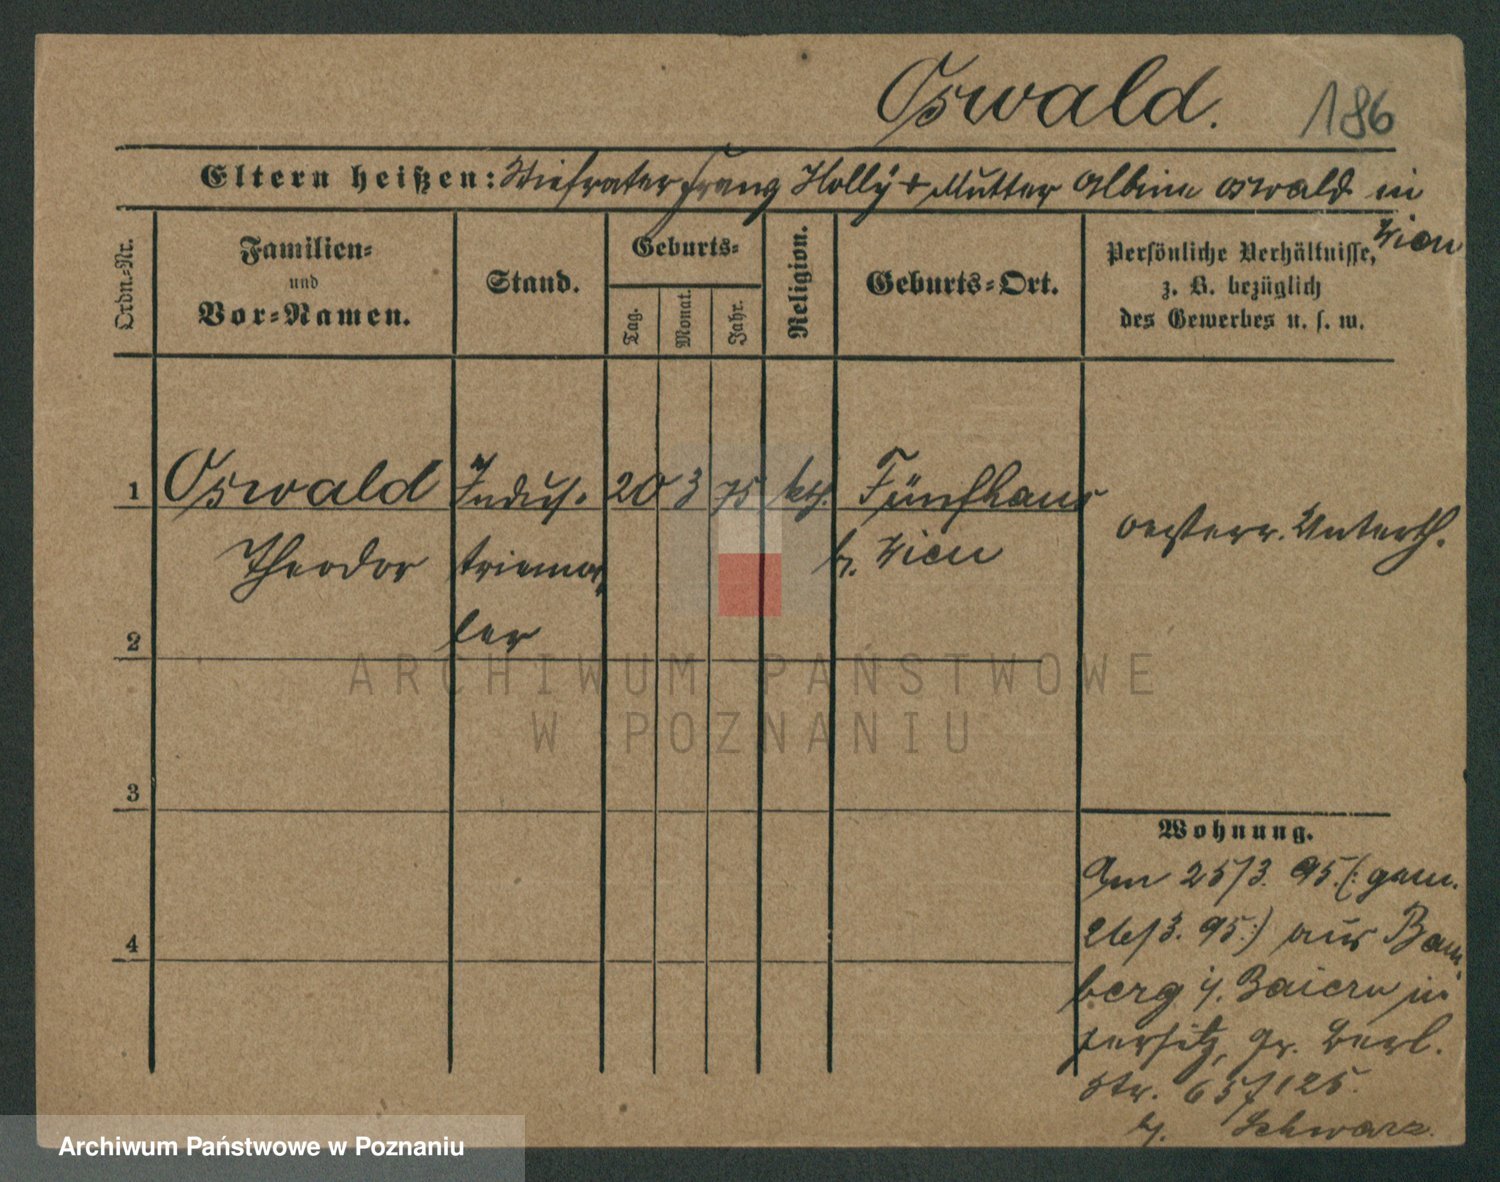 Oswald. 186
Eltern heißen: Stiefvater Franz Holly + Mutter Albine Oswald in
Wien
Ordn.-Nr.
Familien-
und
Vor-Namen.
Stand.
Geburts-
Tag.
Monat.
Jahr.
Religion.
Geburts-Ort.
Persönliche Verhältnisse,
z. B. bezüglich
des Gewerbes u. s. w.
1 Oswald Indus- 20 3 75 kth. Fünfhaus
Theodor triema- b. Wien
ler
oesterr. Unterth.
2
3
4
Wohnung.
Am 25/3. 95. (: gem.
26/3. 95 :) aus Bam-
berg i/. Baiern in
Jersitz, Gr. Berl.
Str. 65/125.
b/. Schwarz.
ARCHIWUM PAŃSTWOWE
W POZNANIU
Archiwum Państwowe w Poznaniu